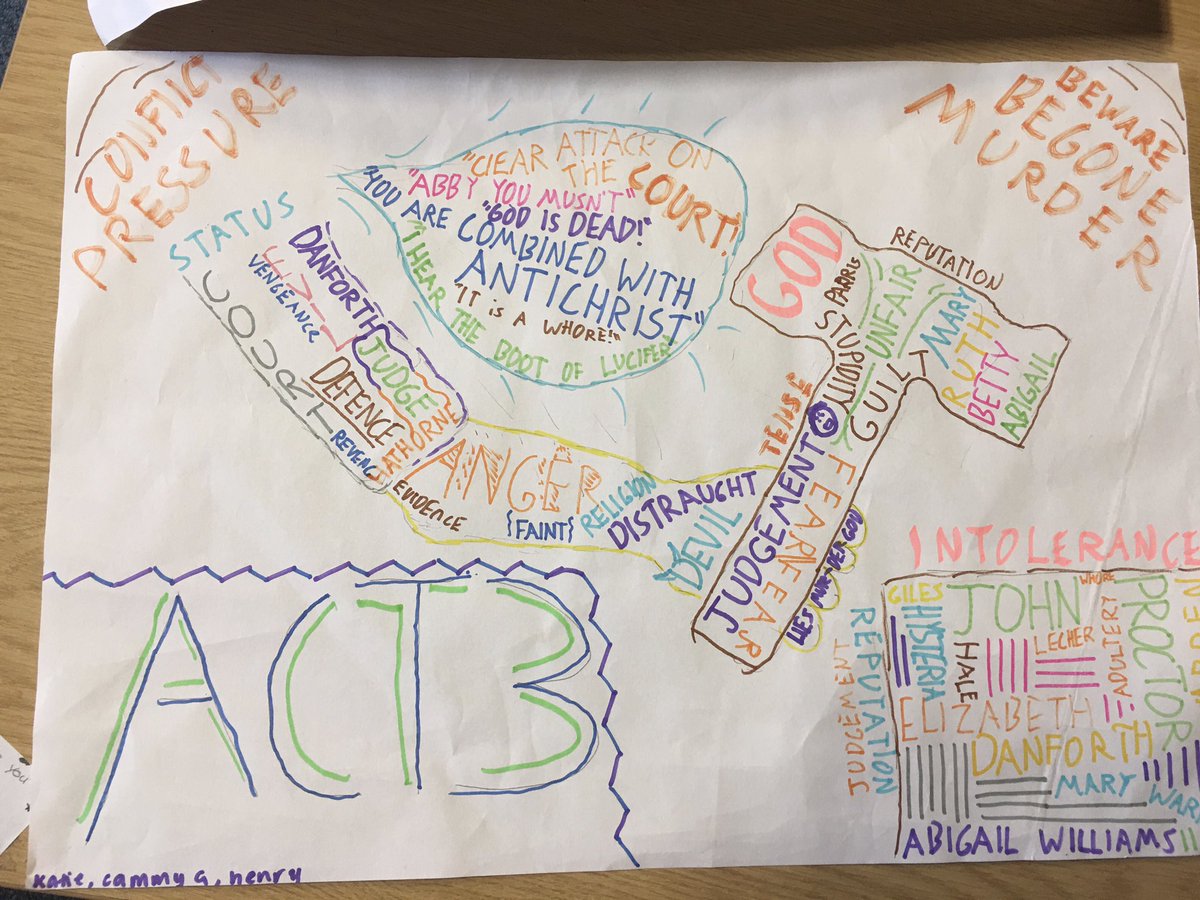 CONFlICT
PRESSURE
BEWARE
BEGONE
MURDER
"CLEAR ATTACK ON
THE COURT!"
"ABBY YOU MUSN'T"
"GOD IS DEAD!"
"YOU ARE COMBINED WITH
ANTICHRIST"
"IT IS A WHORE!"
"I HEAR THE BOOT OF LUCIFER"
STATUS
COURT
VENGEANCE
DANFORTH
JUDGE
HATHORNE
DEFENCE
REVENG
EVIDENCE
ANGER
{FAINT}
RELIGION
DISTRAUGHT
DEVIL
TENSE
GOD
PARRIS
STUPIDITY
UNFAIR
GUILT
REPUTATION
MARY
RUTH
BETTY
ABIGAIL
JUDGEMENT
FEAR FEAR
LIES MURDER GOD
ACT 3
INTOLERANCE
GILES
HYSTERIA
JOHN
WHORE
PROCTOR
HALE
LECHER
ADULTERY
ELIZABETH
DANFORTH
MARY WARR
ABIGAIL WILLIAMS
REPUTATION
JUDGEMENT
you
Katie, cammy G, henry